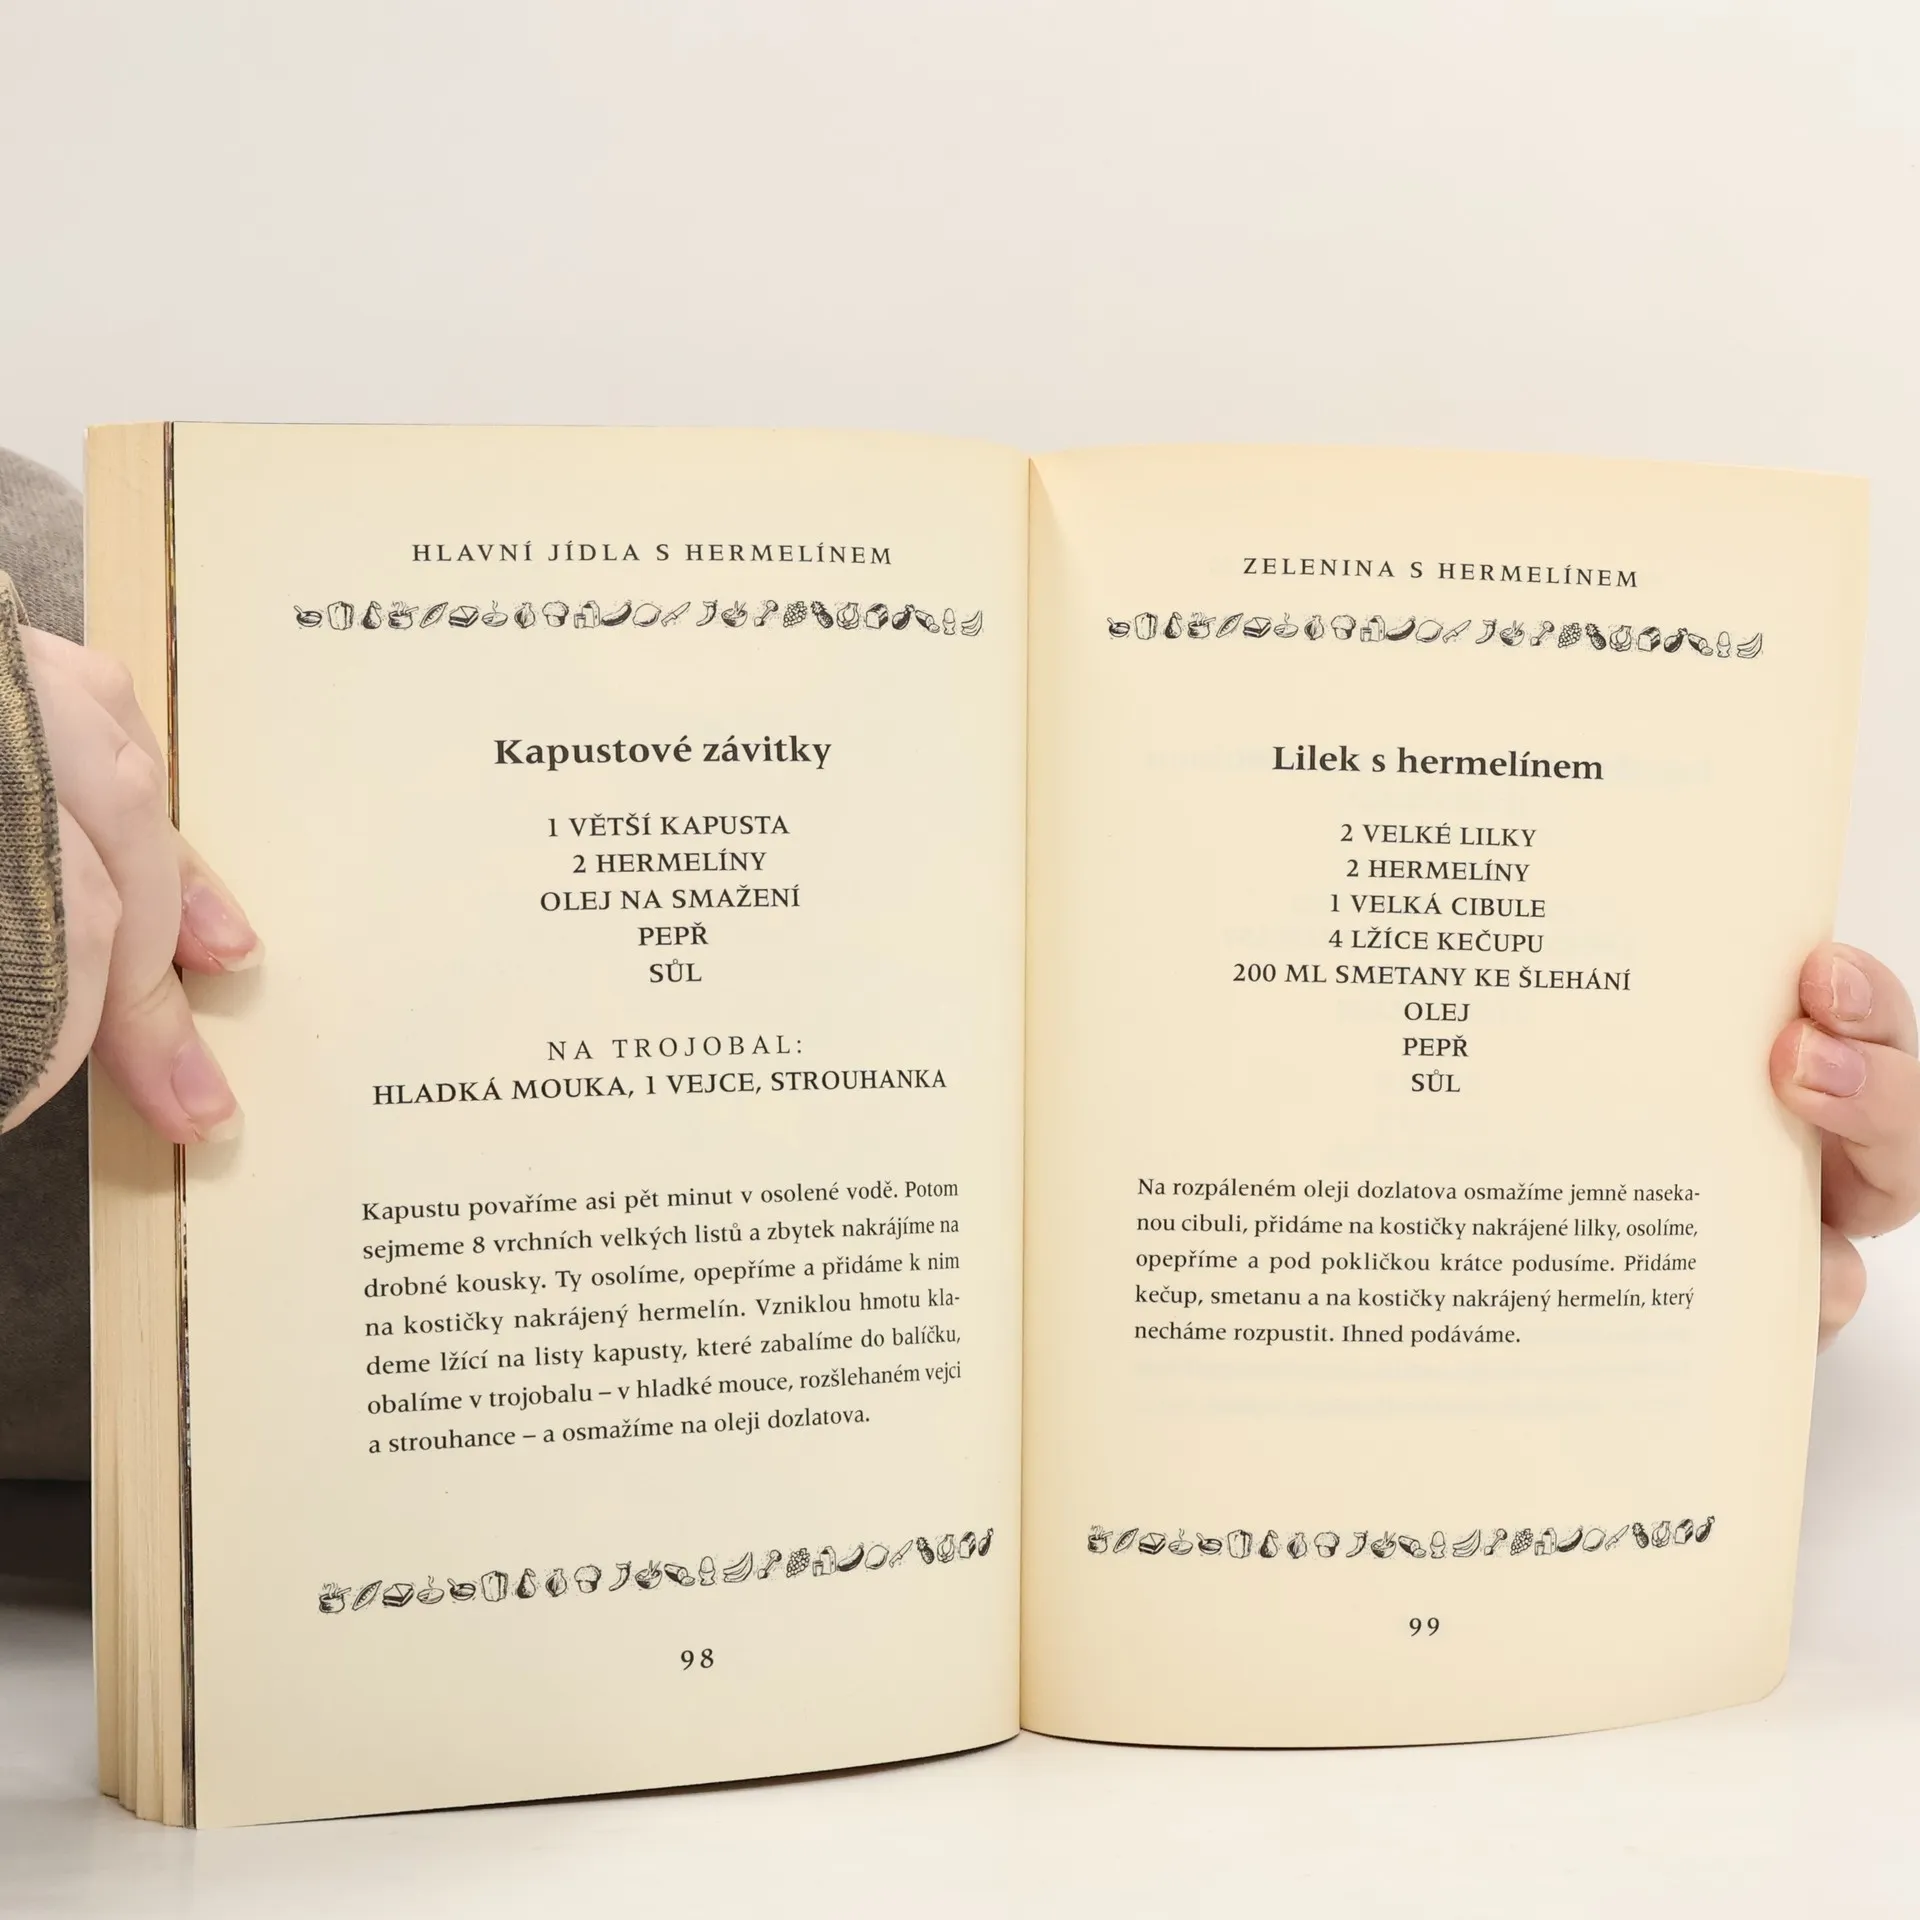 HLAVNÍ JÍDLA S HERMELÍNEM
Kapustové závitky
1 VĚTŠÍ KAPUSTA
2 HERMELÍNY
OLEJ NA SMAŽENÍ
PEPŘ
SŮL
NA TROJOBAL:
HLADKÁ MOUKA, 1 VEJCE, STROUHANKA
Kapustu povaříme asi pět minut v osolené vodě. Potom
sejmeme 8 vrchních velkých listů a zbytek nakrájíme na
drobné kousky. Ty osolíme, opepříme a přidáme k nim
na kostičky nakrájený hermelín. Vzniklou hmotu kla-
deme lžící na listy kapusty, které zabalíme do balíčku,
obalíme v trojobalu – v hladké mouce, rozšlehaném vejci
a strouhance – a osmažíme na oleji dozlatova.
98
ZELENINA S HERMELÍNEM
Lilek s hermelínem
2 VELKÉ LILKY
2 HERMELÍNY
1 VELKÁ CIBULE
4 LŽÍCE KEČUPU
200 ML SMETANY KE ŠLEHÁNÍ
OLEJ
PEPŘ
SŮL
Na rozpáleném oleji dozlatova osmažíme jemně naseka-
nou cibuli, přidáme na kostičky nakrájené lilky, osolíme,
opepříme a pod pokličkou krátce podusíme. Přidáme
kečup, smetanu a na kostičky nakrájený hermelín, který
necháme rozpustit. Ihned podáváme.
99